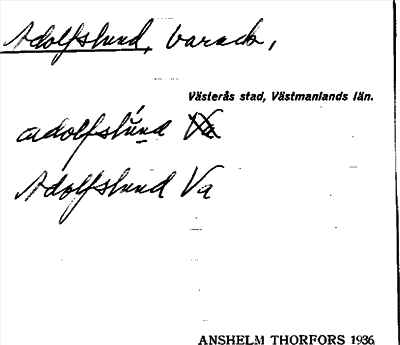 Adolfslund, barack,
Västerås stad, Västmanlands län.
adolfslúnd Va
Adolfslund Va
ANSHELM THORFORS 1936.